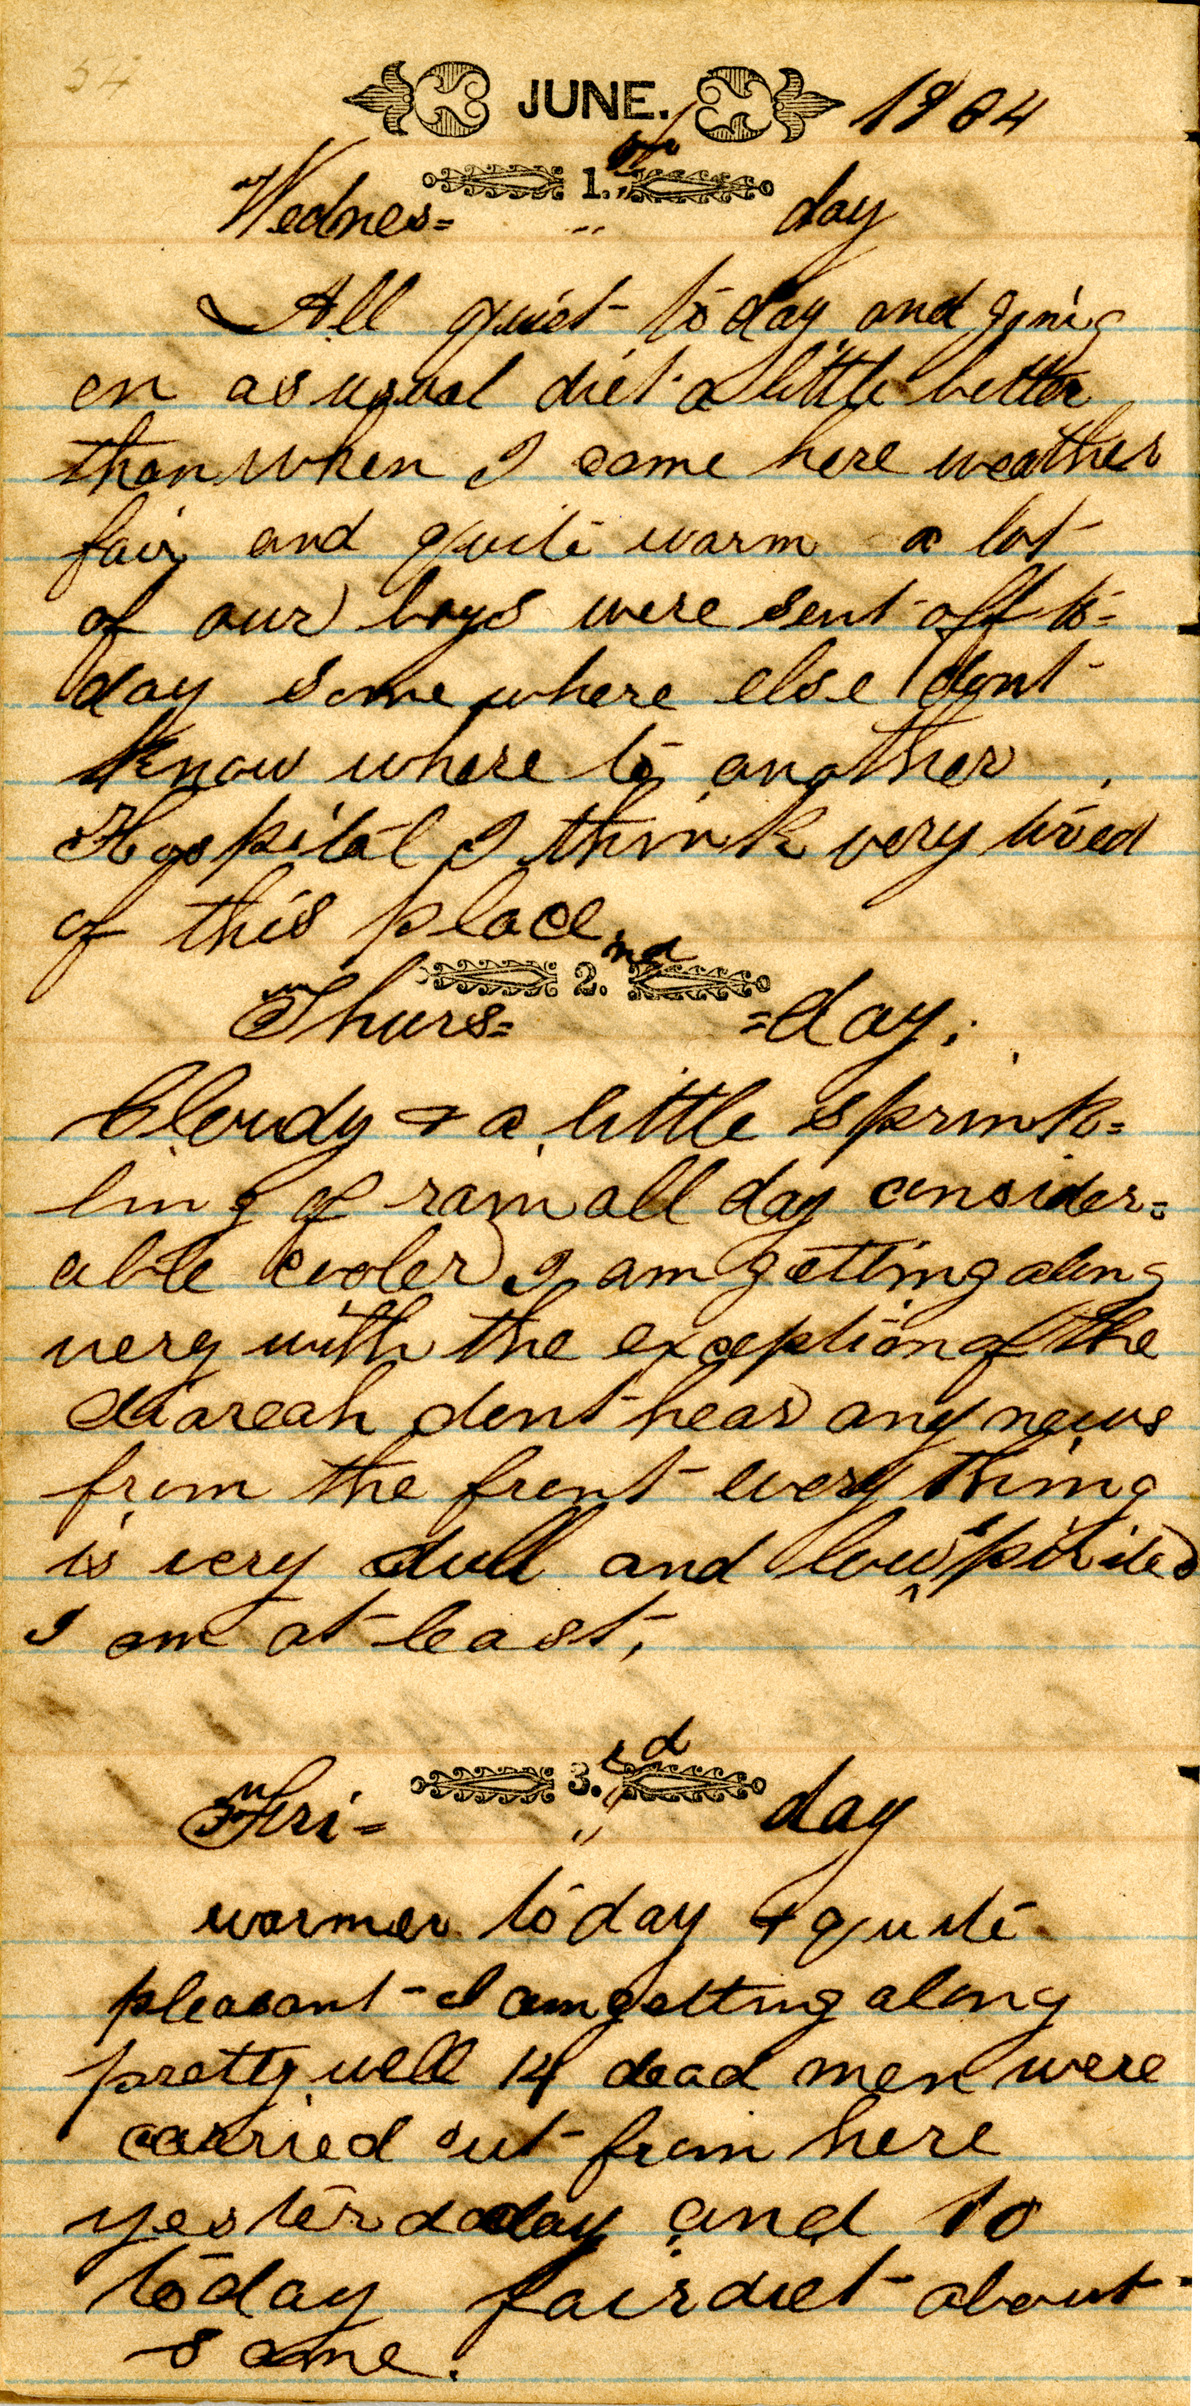 54
JUNE. 1864
1.st
Wednes= " day
All quiet to day and going
on as usual diet a little better
than when I came here weather
fair and quite warm a lot
of our boys were sent off to=
day some where else dont
know where to another
Hospital I think very tired
of this place.
2.nd
Thurs= =day.
Cloudy & a little sprink=
ling of rain all day consider=
able cooler I am getting along
very with the exception of the
diareah dont hear any news
from the front every thing
is very dull and low spirited
I am at least,
3.rd
Fri= " day
warmer to day & quite
pleasant - I am getting along
pretty well 14 dead men were
carried out from here
yesterdaday and 10
today fair diet about
same.